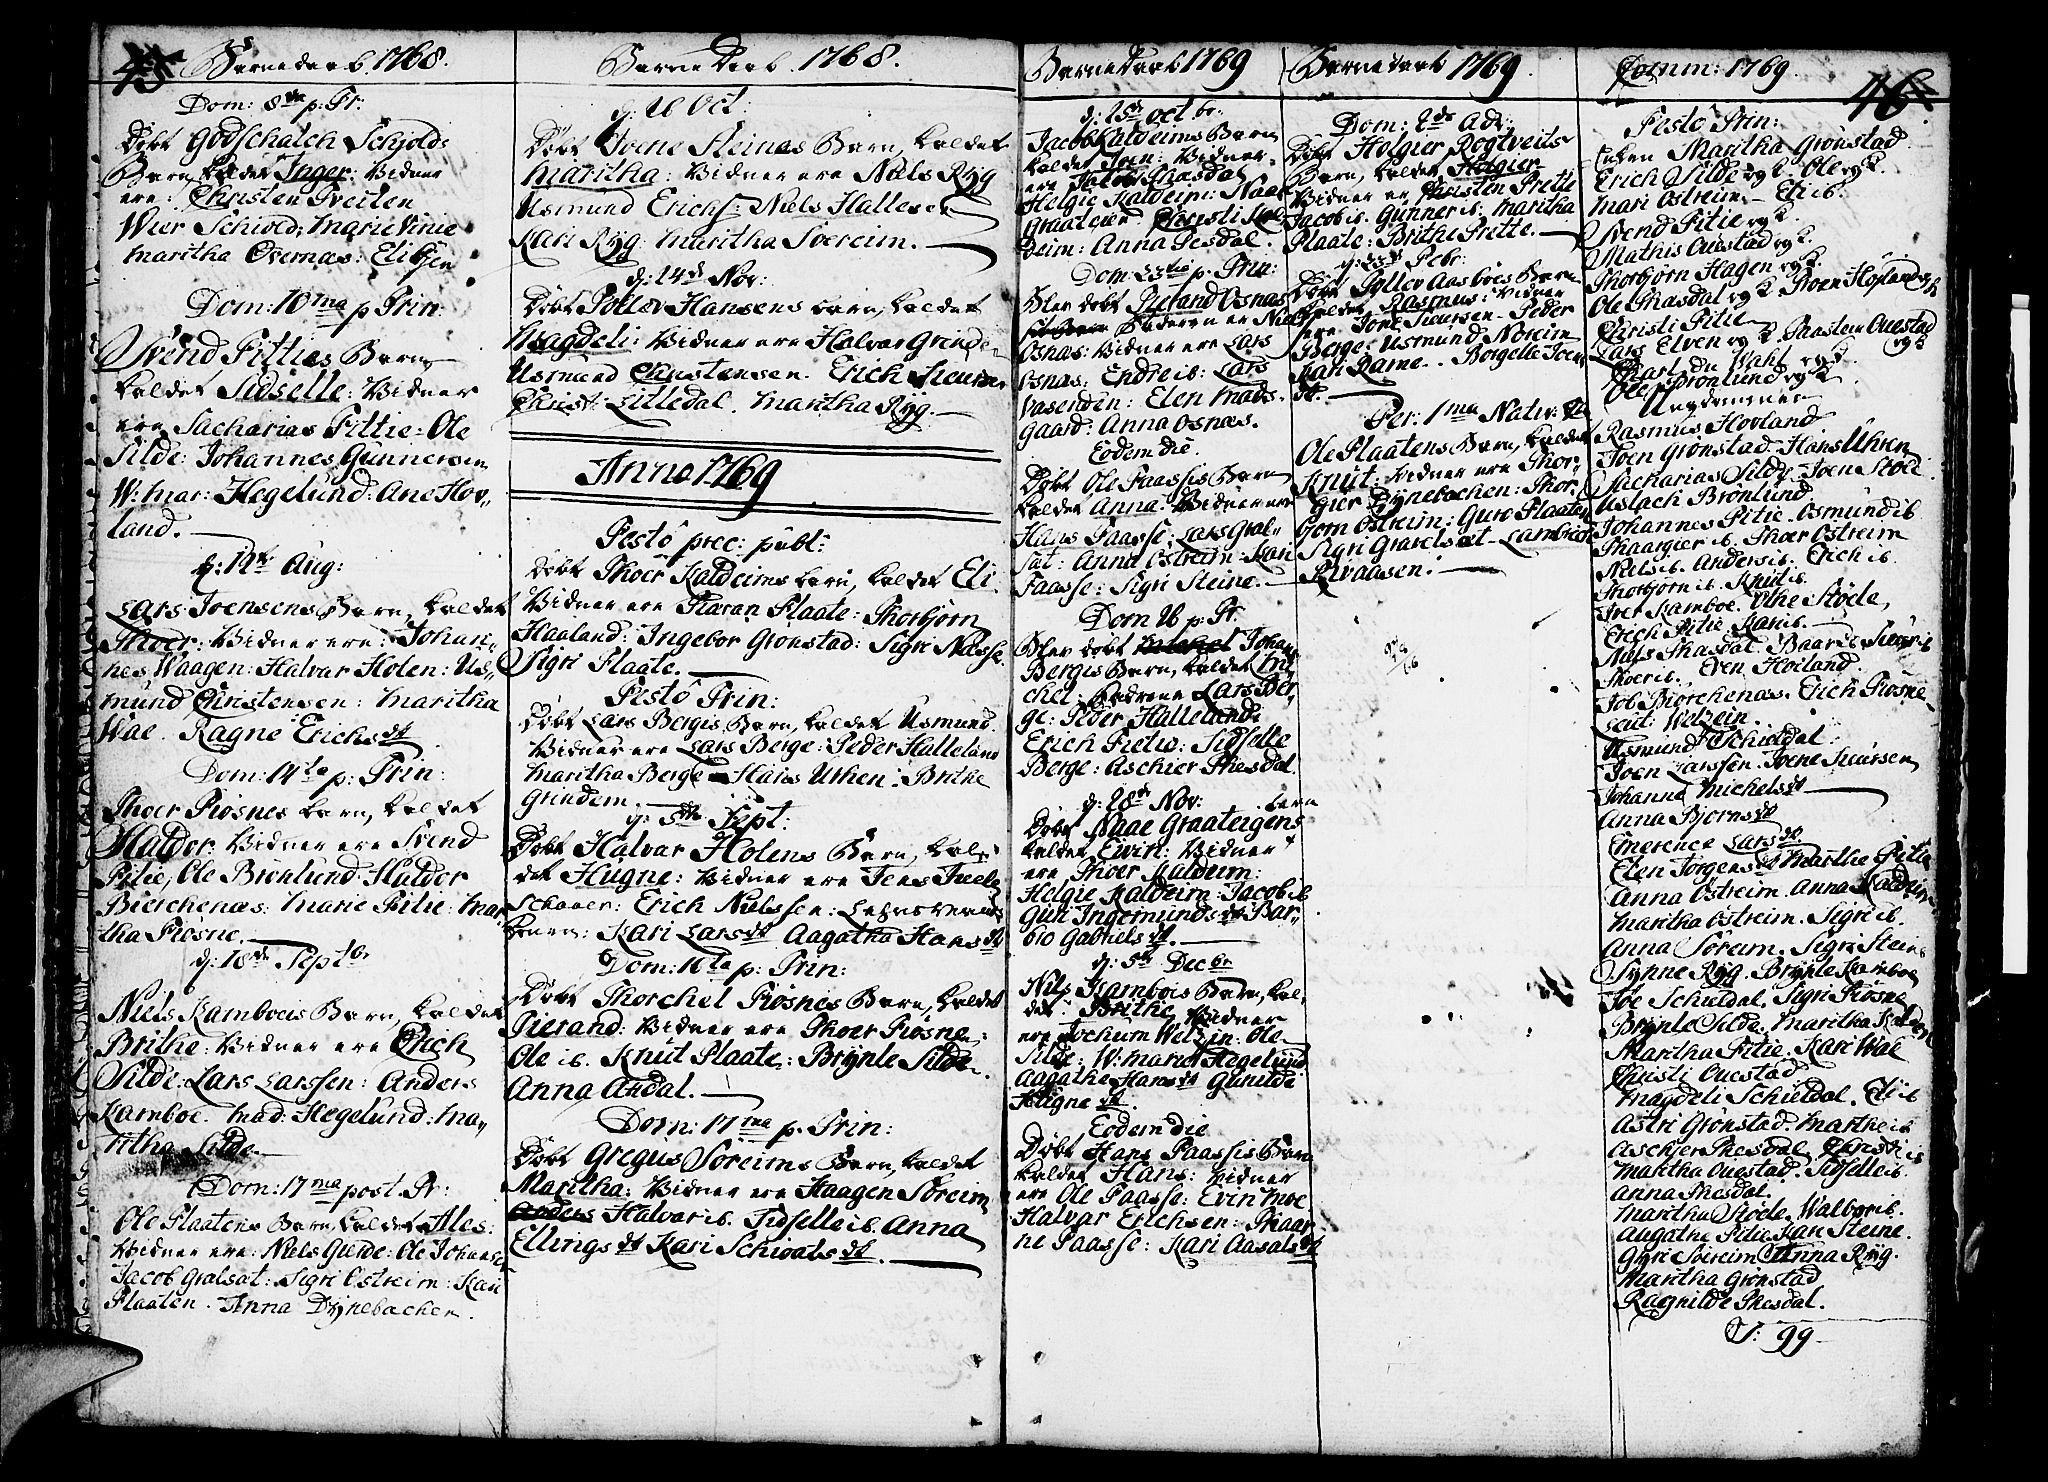 45
Barne daab 1768.
Dom: 8va p: Tr:
Døbt Godschalch Schjolds
Barn, kaldet Inger: Vidner
ere: Christen Tveiten
Wier Schiold: Marie Vinie
Maritha Osernas: Eli
Dom: 10ma p Trin:
Svend Fitties Barn
kaldet Sidselle: Vidner
ere Sacharias Fittie: Ole
Silde: Johannes Gunnersen
W: Mar: Hegelund: Ane Hov-
land.
d: 14de Aug:
Lars Joensens Barn, kaldet
Thoer: Vidner ere: Johan-
nes Waagen: Halvar Holen: Us-
mund Christensen: Maritha
Wae. Ragne Erichsdt
Dom: 14ta p: Trin:
Thoer Fiosnes barn, kaldet
Haldor: Vidner ere Svend
Fitie, Ole Bronlund: Haldor
Bierchenæs: Marie Fitie: Mar
tha Fiosne.
d: 18de Septbr
Niels Kamboeis Barn, kaldet
Brithe: Vidner ere Erich
Silde: Lars Larssen: Anders
Kamboe. Mad: Hegelund: Ma-
ritha Silde.
Dom: 17ma post Tr:
Ole Plaatens Barn, kaldet Ales:
Vidner ere: Niels Gierde: Ole Johans
Jacob Gralsat: Sigri Ostreim: Kari
Plaaten. Anna Dynebachen.
Barne Daab. 1768.
d: 16 Oct:
Døbt Joene Steines Barn, kaldet
Maritha: Vidner ere Niels Ryg
Usmund Erichs: Niels Halleser
Kari Ryg: Maritha Soereim.
d: 14d Nov:
Døbt Tollov Hansens barn, kaldet
Magdeli: Vidner ere Halvar Grinde
Usmund Christensen. Erich Siursen
Christ: Litledal. Maritha Ryg.
Anno 1769
Festo prec: publ:
Døbt Thoer Kaldeims barn, kaldet Eli.
Vidner ere Haran Plaate: Thorbjorn
Haaland: Ingebor Gronstad: Sigri Næsse.
Sigri Plaate.
Festo Trin:
Døbt Lars Bergis Barn, kaldet Usmund.
Vidner ere Lars Berge: Peder Halleland
Maritha Berge Hans Urhen: Brithe
Grindem.
d: 5te Sept:
Døbt Halvar Holens Barn, kal-
det Hugne: Vidner ere Jens
Schouer: Erich Nielssen:
Kari Larsdt Aagatha Hansdt
Dom: 16ta p: Trin:
Døbt Thorchel Fiosnes Barn, kaldet
Gierand: Vidner ere Thoer Fiosne:
Ole ib. Knut Plaate: Brynle Silde.
Anna Axdal.
Dom: 17ma p. Trin:
Døbt Gregus Soreims Barn, kaldet
Maritha: Vidner ere Haagen Soreim
Anders Halvar ib. Sidselle ib. Anna
Ellingsdt Kari Schioalsdt.
Barne Daab 1769
d: 15de Octbr.
Jacob Kaldeims Barn
kaldet Iren: Vidner
ere Jacob Thasdal
Helgie Kaldeim: Naae
Graateien Christi Kal
deim: Anna Pesdal.
Dom: 22tia p. Trin:
Blev døbt Gierand Osnæs
Faderen er Niels
Osnæs: Vidner ere Lars
Osnæs: Endre ib: Lars
Vasenden: Elen Mads-
gaard: Anna Osnæs.
Eodem die.
Døbt Ole Faassis Barn
kaldet Anna. Vidner ere
Hans Faasse: Lars Gral-
sat: Anna Ostreim: Kari
Faasse: Sigri Steine.
Dom 26 p: Tr.
Blev døbt Michel Johans
Bergis Barn, kaldet Mi
chel: Fadrene Lars Ber-
ge: Peder Halleland:
Erich Fietie: Sidselle
Berge: Aschier Thesdal.
d: 28de Nov: barn
Døbt Naae Graatergens
kaldet Ewin: Vidner
ere Thoer Kaldeim:
Helgie Kaldeim: Jacob ib
Guri Ingeimundsdt Bar-
bro Gabrielsdt.
d: 5te Decbr
Niels Kambois Barn, kal-
det: Brithe Vidner
ere Jochum Welzin: Ole
Silde: W: Maret Hegelund
Aagathe Hansdt Gunilde
Hugne dt.
Eodem die
Døbt Hans Faassis Barn
kaldet Hans: Vidner
ere Ole Faasse: Evin Moe
Halvar Erichsen: Thaar
ne Faasse: Kari Aasalsdt
Barne daab 1769.
Dom: 2da Adv:
Døbt Holgier Rogtveits
Barn, kaldet Holgier
Vidner ere Christen Prette
Jacob ib. Gunner ib: Maritha
Plaate: Brithe Prette.
d: 23de Febr:
Døbt Tollev Aasbøes Barn
kaldet Rasmus: Vidner
ere Tore Siursen. Peder
Berge: Usmund Noreim
Mari Rame.. Borgelle Joens
dt.
Fer: 1ma Nativ:
Ole Plaatens Barn, kaldet
Knut: Vidner ere Thor-
gier Dynebachen: Thor-
biorn Ostreim: Guro Plaaten
Sigri Gravelsæt Lambregt
Qlvaasen.
Comm: 1769.
46
Festo Trin:
Enken Maritha Gronstad.
Erich Silde og K. Ole og K.
Mari Ostreim. Eli ib.
Svend Fitie og K.
Mathis Ouestad og K.
Thorbjorn Hagen og K.
Ole Thasdal og K. Thoen Hoyland og K
Christi Fitie
Lars Elven og K Thasten Ouestad
og K
Carl du Wahl og K.
Ole Bronlund og K
Ungdommer
Rasmus Hovland.
Joen Gronstad. Hans Uhren
Sacharias Silde. Joen Stole
Aslach Bronlund
Johannes Fitie. Osmund ib
Thaargier ib. Thoer Ostreim
Niels ib. Anders ib. Erich ib
Thorbjorn ib. Knut ib
Iver Kamboe. Othe Støle,
Erich Fitie Kari ib.
Niels Thasdal. Baard Siurs ib
Thoer ib. Even Hoiland.
Job Biorchenæs. Erich Fiosne
Lait: Welzein.
Usmund Schieldal.
Joen Larssen. Joene Siursen
Johanne Michelsdt
Anna Bjornsdt
Emerence Larsdt
Elen Jorgensdt Martha Fitie
Anna Ostreim. Anna Kaldeim
Maritha Ostreim. Sigri ib.
Anna Soreim. Sigri Steine
Synne Ryg. Brynle Kamboe
Joe Schieldal. Sigri Fiosne
Brynle Silde. Maritha Kaldeim
Martha Fitie. Kari Wae
Christi Ouestad
Magdeli Schieldal. Eli ib
Astri Gronstad. Marthe ib
Aschier Thesdal. Christi ib
Martha Ouestad. Sidselle ib.
Anna Thesdal.
Maritha Støle. Walbor ib.
Augathe Fitie Kari Steine.
Gyri Soreim Anna Ryg.
Maritha Gronstad
Ragnilde Thesdal.
S: 99